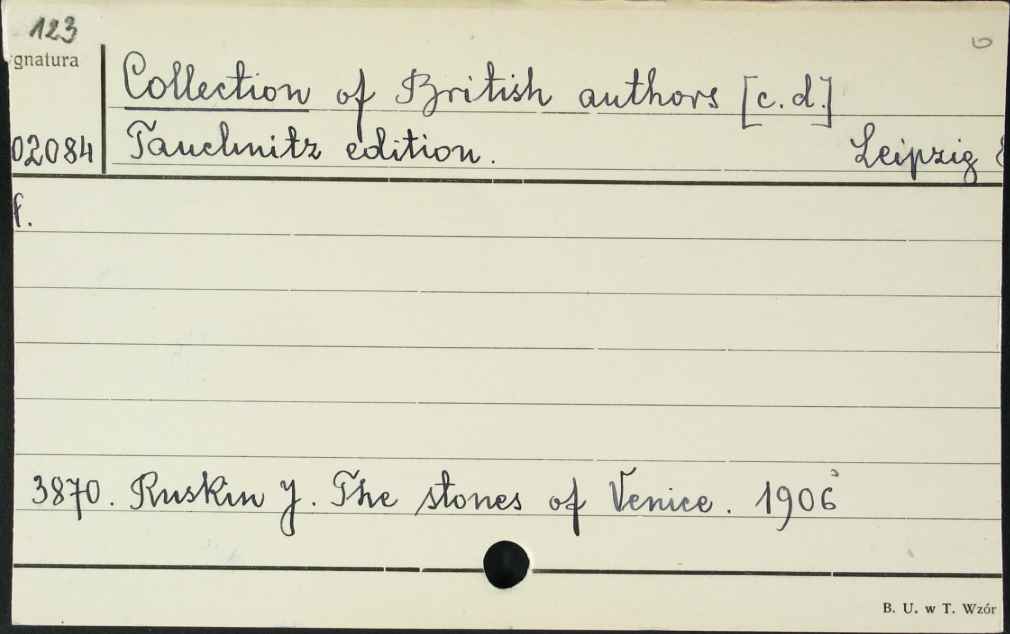 123
gnatura
Collection of British authors [c.d.]
02084 Tauchnitz edition. Leipzig
f.
3870. Ruskin J. The stones of Venice. 1906
B. U. w T. Wzór